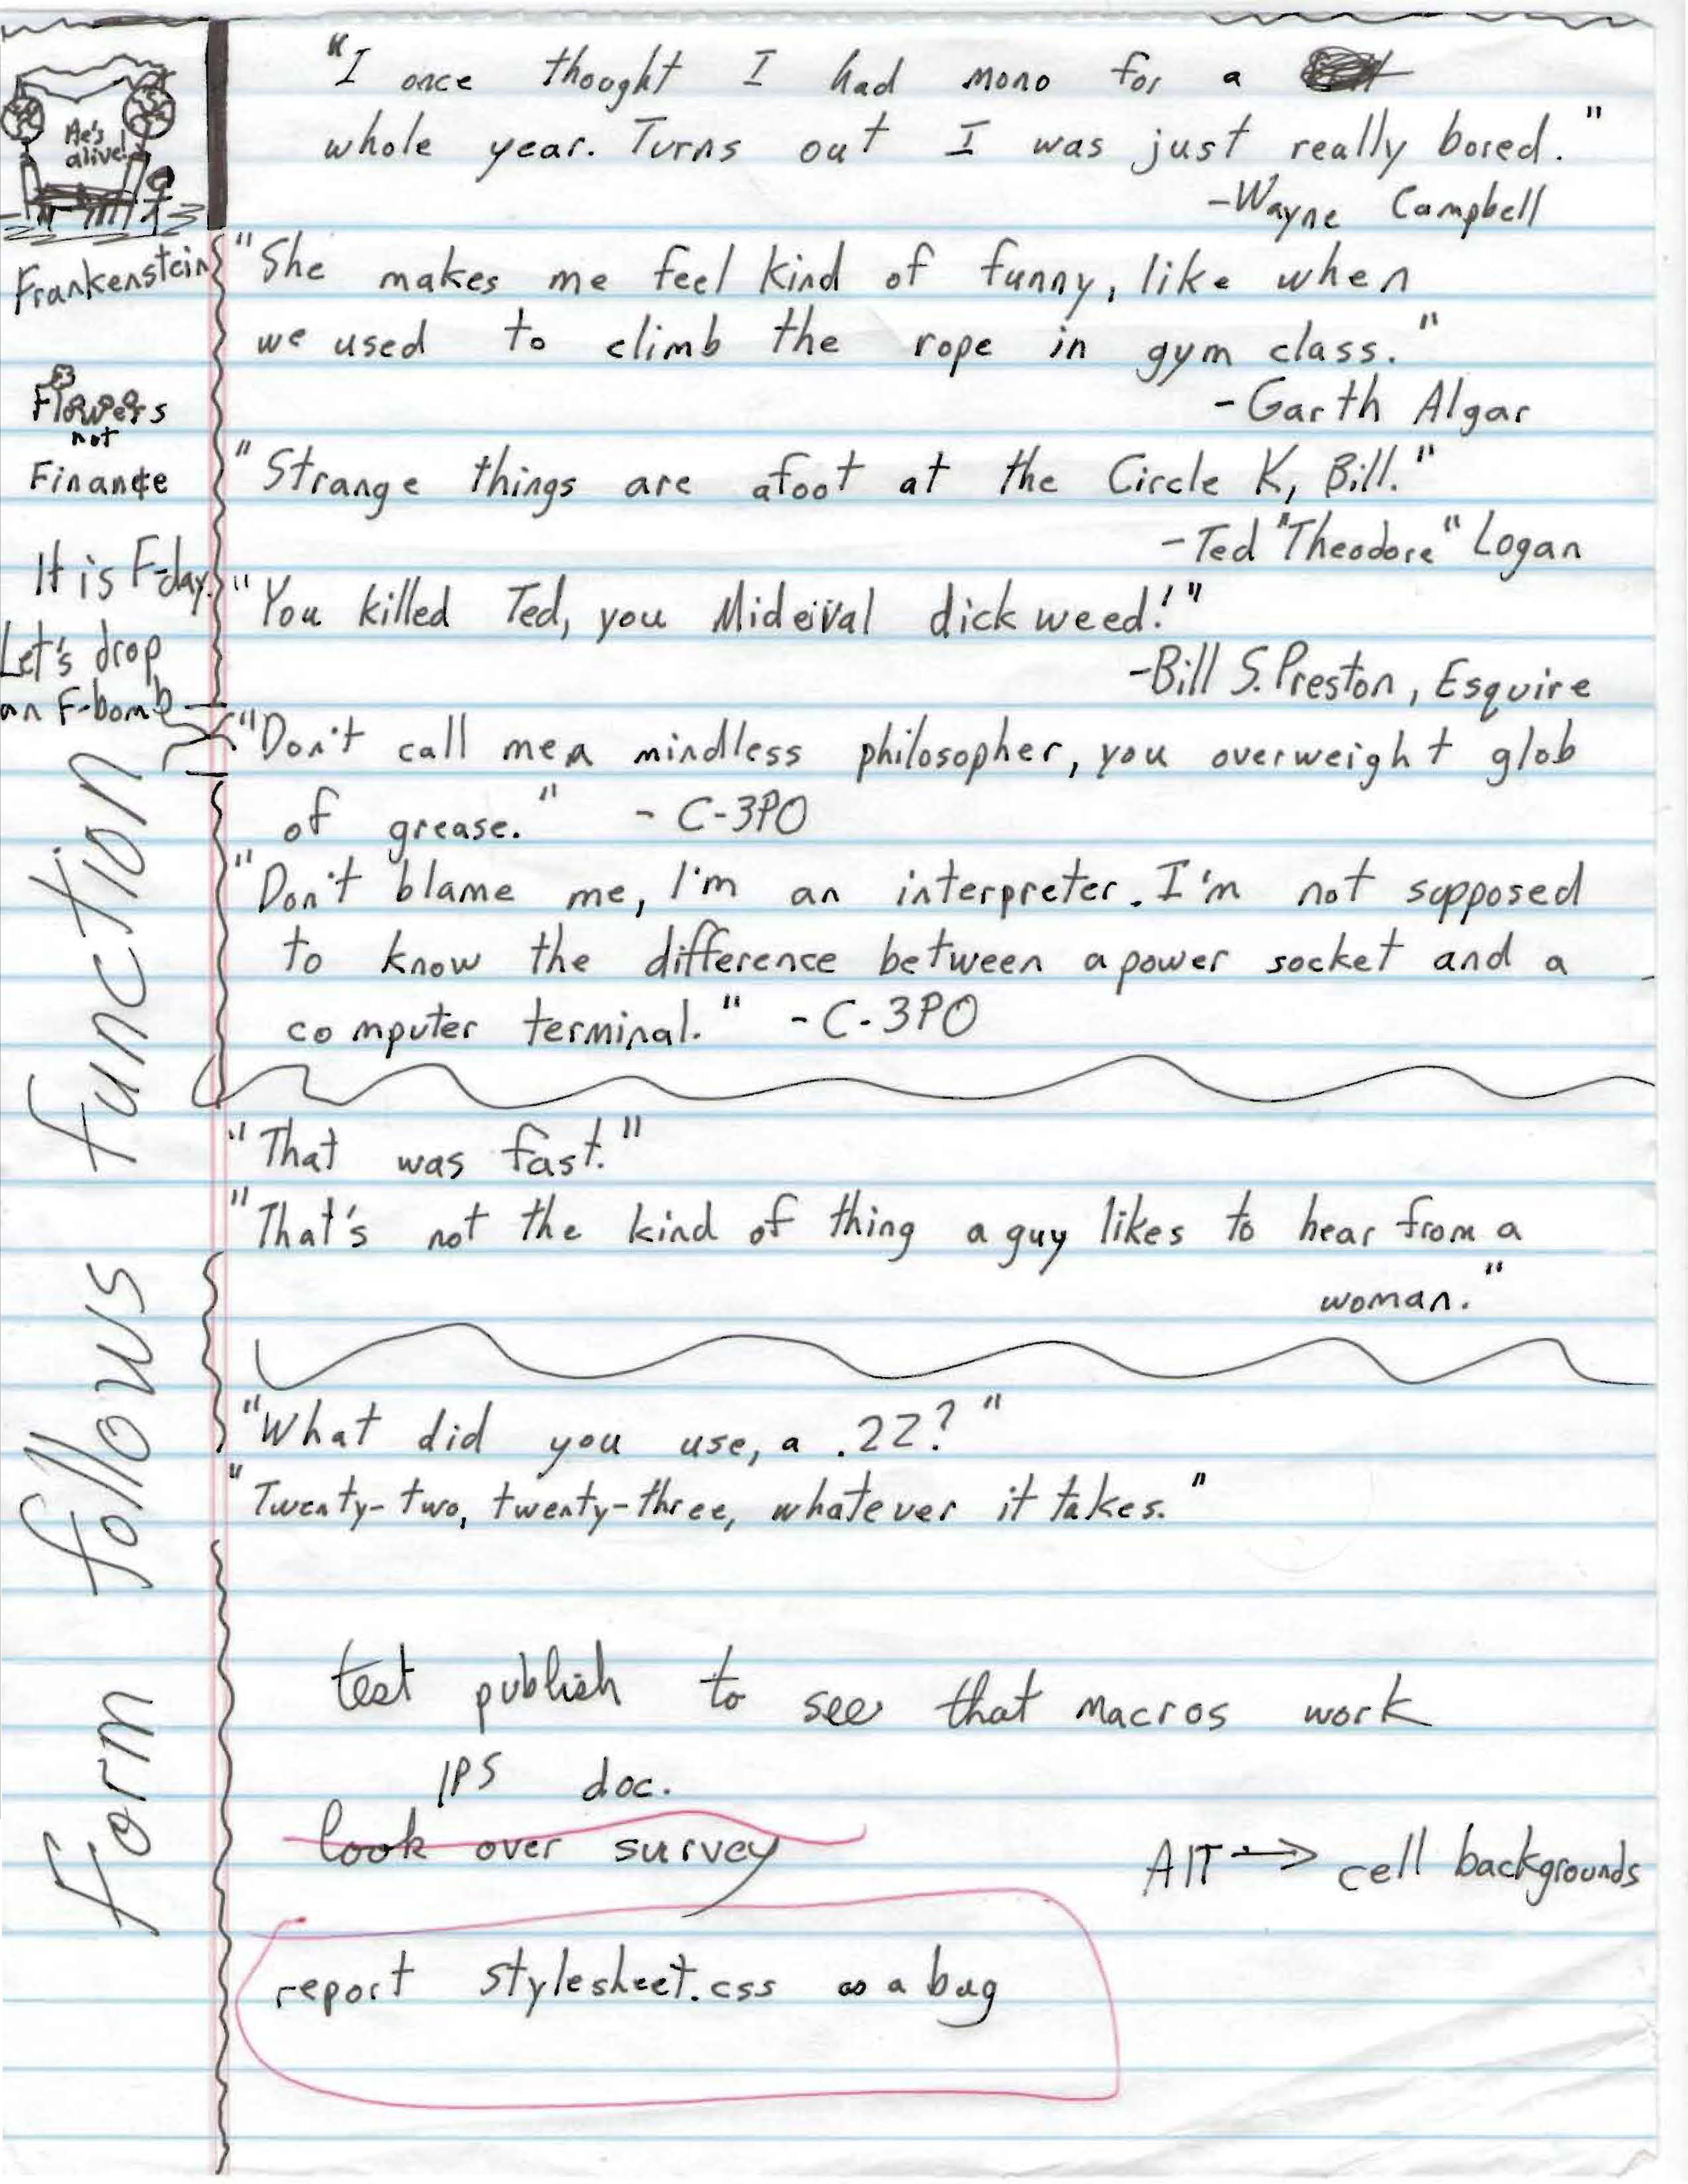 "I once thought I had mono for a
whole year. Turns out I was just really bored."
-Wayne Campbell
"She makes me feel kind of funny, like when
we used to climb the rope in gym class."
-Garth Algar
"Strange things are afoot at the Circle K, Bill."
-Ted "Theodore" Logan
"You killed Ted, you Mideival dick weed!"
-Bill S. Preston, Esquire
"Don't call me a mindless philosopher, you overweight glob
of grease." - C-3PO
"Don't blame me, I'm an interpreter. I'm not supposed
to know the difference between a power socket and a
computer terminal." - C-3PO
"That was fast."
"That's not the kind of thing a guy likes to hear from a
woman."
"What did you use, a .22?"
"Twenty-two, twenty-three, whatever it takes."
test publish to see that macros work
IPS doc.
look over survey
AIT → cell backgrounds
report stylesheet.css as a bug
He's
alive!
Frankenstein
Flowers
not
Finance
It is F-day.
Let's drop
an F-bomb
Form follows function